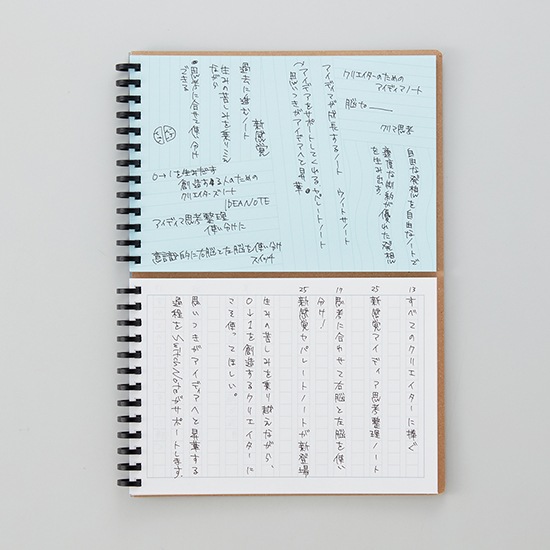 クリエイターのための
アイディアノート
脳な
クリマ思考
自由な発想を自由なノートで
適度な制約が優れた発想
を生み出す!
アイディアが成長するノート
ウノサノート
(アイデアをサポートしてくれるセパレートノート
思いつきがアイデアへと昇華。
新感覚
過去に進むノート
生みの苦しみを乗りこえ
ながら
•思考に合せて使い分け
できる
0→1を生みだす
創造する人のための
クリエイターズノート
IDEANOTE
アイディア思考整理
使い分けに
意識的に右脳と左脳を使い分け
スイッチ
13 すべてのクリエイターに捧ぐ
25 新感覚アイディア思考整理ノート
19 思考に合わせて右脳と左脳を使い
分け!
25 新感覚セパレートノートが新登場
生みの苦しみを乗り越えながら、
0→1を創造するクリエイターに
こそ使ってほしい。
思いつきがアイディアへと昇華する
過程をSwitch Noteがサポートします